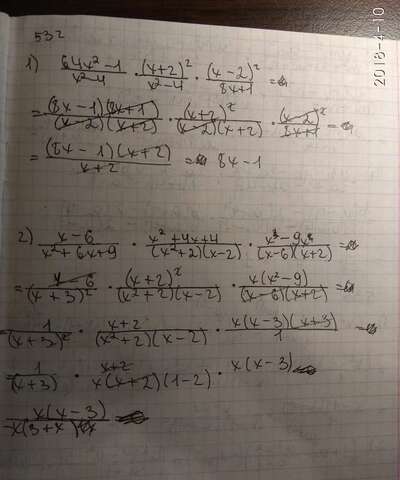 532
2018-4-10
1) (64x²-1)/(x²-4) · (x+2)²/(x²-4) · (x-2)²/(8x+1) =
= (8x-1)(8x+1)/(x-2)(x+2) · (x+2)²/(x-2)(x+2) · (x-2)²/(8x+1) =
= (8x-1)(x+2)/(x+2) = 8x-1
2) (x-6)/(x²+6x+9) · (x²+4x+4)/(x²+2)(x-2) · (x³-9x)/(x-6)(x+2) =
= (x-6)/(x+3)² · (x+2)²/(x²+2)(x-2) · x(x²-9)/(x-6)(x+2) =
1/(x+3)² · (x+2)/(x²+2)(x-2) · x(x-3)(x+3)/1 =
1/(x+3) · (x+2)/x(x+2)(1-2) · x(x-3)
x(x-3)/-x(3+x)